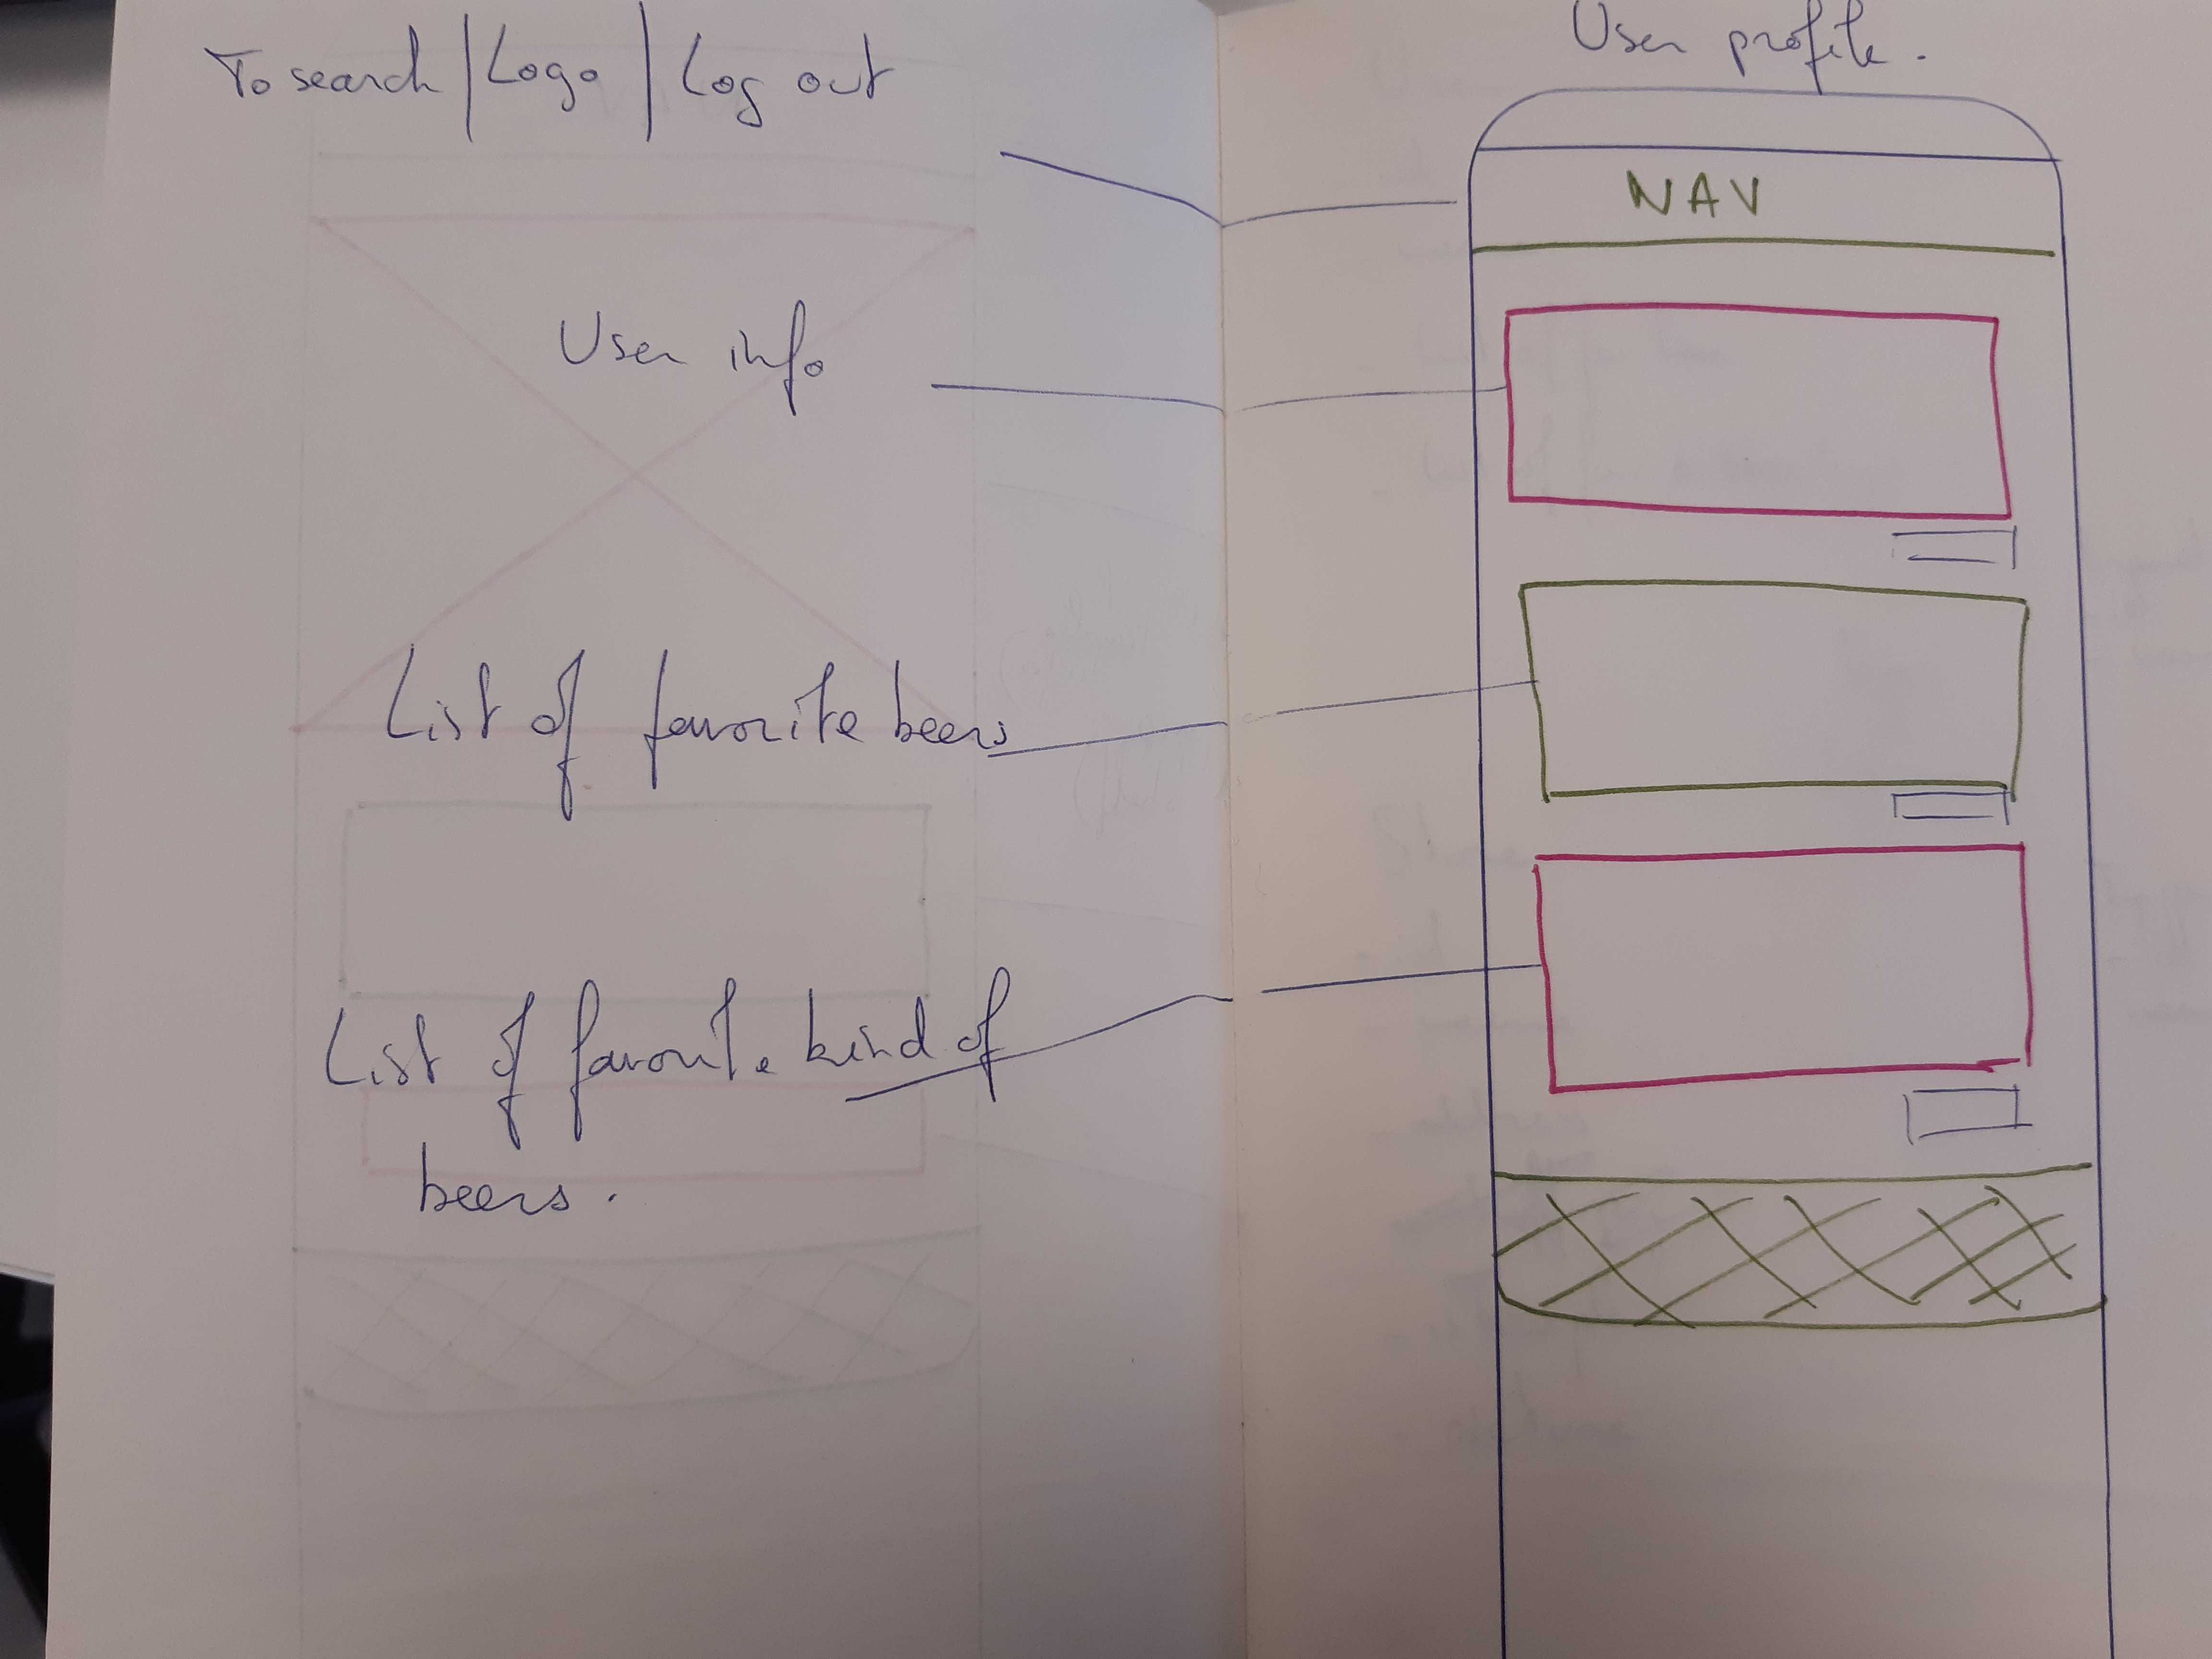 To search | Logo | Log out
User info
List of favorite beers
List of favorite kind of
beers.
User profile.
NAV